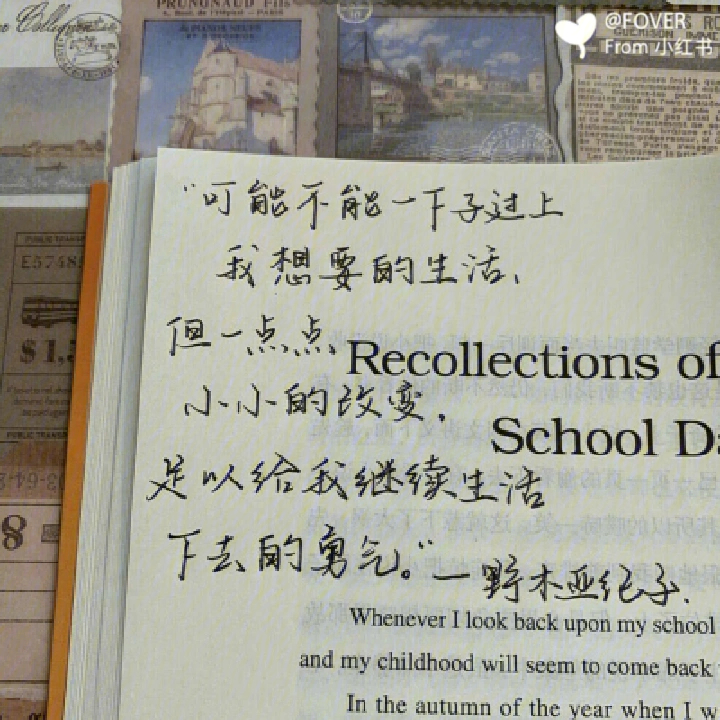 @FOVER
From 小红书
PRUNGNAUD Fils
PUBLIC TRANS
E5748
$1.5
PUBLIC TRAN
8
"可能不能一下子过上
我想要的生活,
但一点点、
小小的改变,
足以给我继续生活
下去的勇气。"—野木亚纪子.
Recollections of
School Da
Whenever I look back upon my school
and my childhood will seem to come back
In the autumn of the year when I w